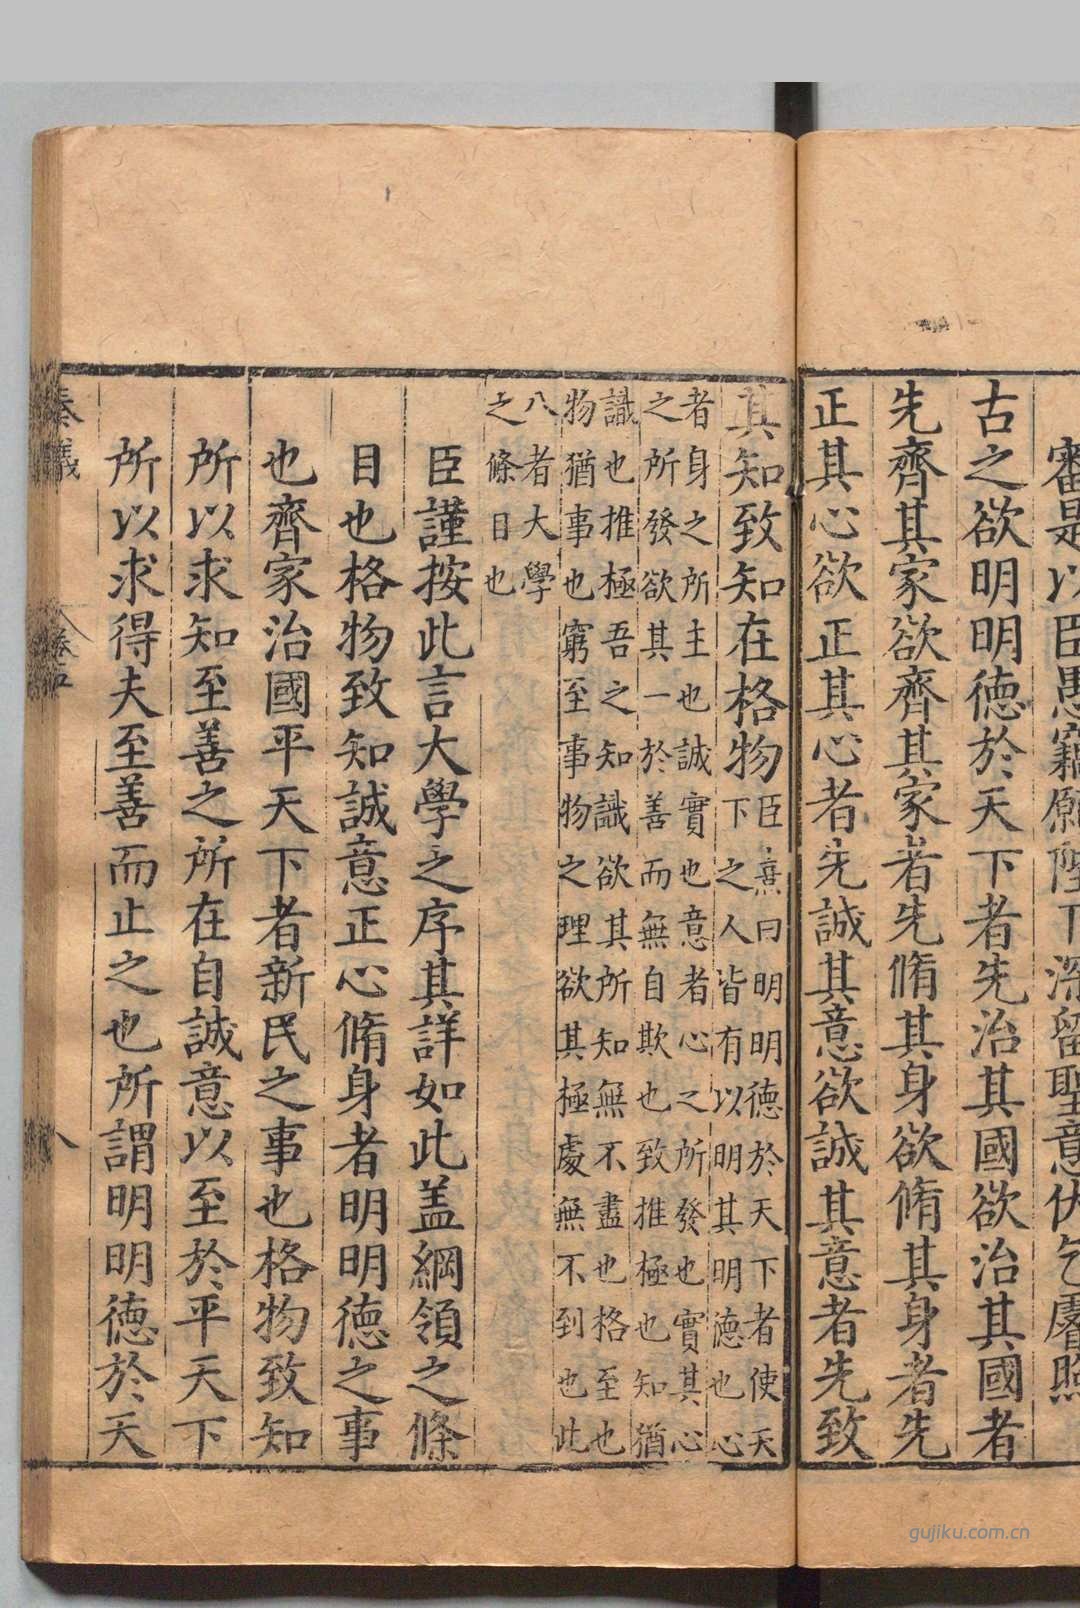 審是以臣愚竊願陛下深留聖意伏乞睿照
古之欲明明德於天下者先治其國欲治其國者
先齊其家欲齊其家者先脩其身欲脩其身者先
正其心欲正其心者先誠其意欲誠其意者先致
其知致知在格物
臣熹曰明明德於天下者使天
下之人皆有以明其明德也心
者身之所主也誠實也意者心之所發也實其心
之所發欲其一於善而無自欺也致推極也知猶
識也推極吾之知識欲其所知無不盡也格至也
物猶事也窮至事物之理欲其極處無不到也此
八者大學
之條目也
臣謹按此言大學之序其詳如此盖綱領之條
目也格物致知誠意正心脩身者明明德之事
也齊家治國平天下者新民之事也格物致知
所以求知至善之所在自誠意以至於平天下
所以求得夫至善而止之也所謂明明德於天
奏議
卷五
八
gujiku.com.cn